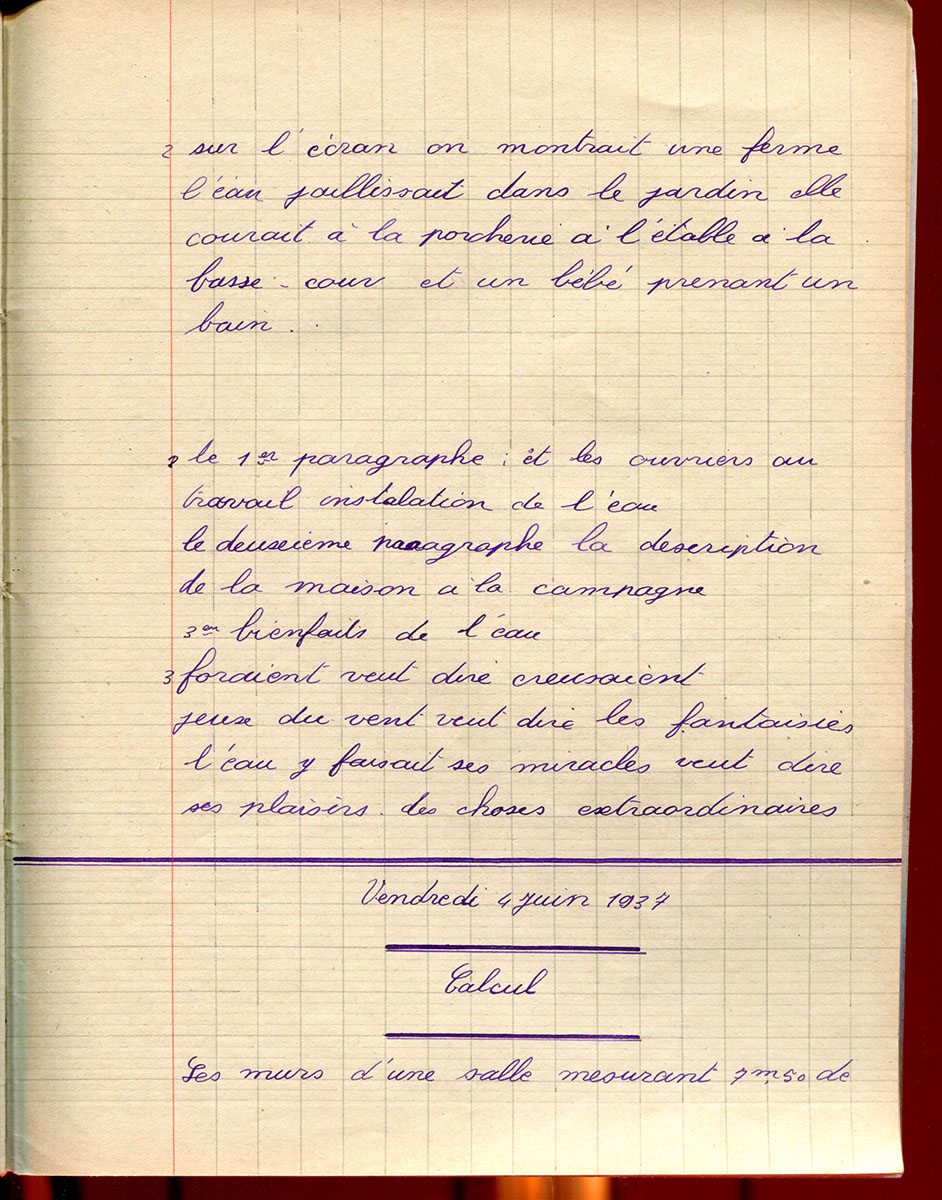 2 sur l'écran on montrait une ferme
l'éau jaillissait dans le jardin elle
courait à la porcherie a l'étable a la
basse-cour et un bébé prenant un
bain.
2 le 1er paragraphe : et les ouvriers au
travail instalation de l'éau
le deuseième paragraphe la description
de la maison a la campagne
3em bienfaits de l'éau
3 foraient veut dire creusaient
jeux du vent veut dire les fantaisies
l'éau y faisait ses miracles veut dire
ses plaisirs. des choses extraordinaires
Vendredi 4 Juin 1937
Calcul
Les murs d'une salle mesurant 7m,50 de